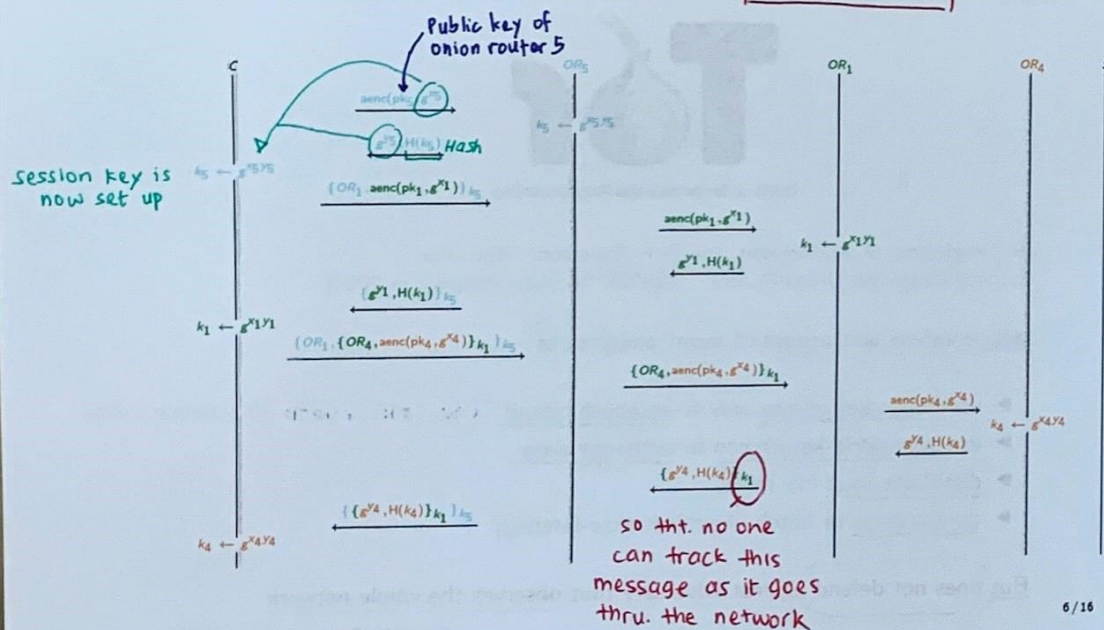 Public key of
onion router 5
C
OR₅
OR₁
OR₄
aenc(pk₅, g^x5)
k₅ ← g^x5y5
g^y5, H(k₅) Hash
session key is
now set up
k₅ ← g^x5y5
{OR₁, aenc(pk₁,g^x1)}k₅
aenc(pk₁,g^x1)
k₁ ← g^x1y1
g^y1,H(k₁)
{g^y1,H(k₁)}k₅
k₁ ← g^x1y1
{OR₁, {OR₄,aenc(pk₄,g^x4)}k₁ }k₅
{OR₄,aenc(pk₄,g^x4)}k₁
aenc(pk₄,g^x4)
k₄ ← g^x4y4
g^y4,H(k₄)
{g^y4,H(k₄)}k₁
{{g^y4,H(k₄)}k₁ }k₅
k₄ ← g^x4y4
so tht. no one
can track this
message as it goes
thru. the network
6/16